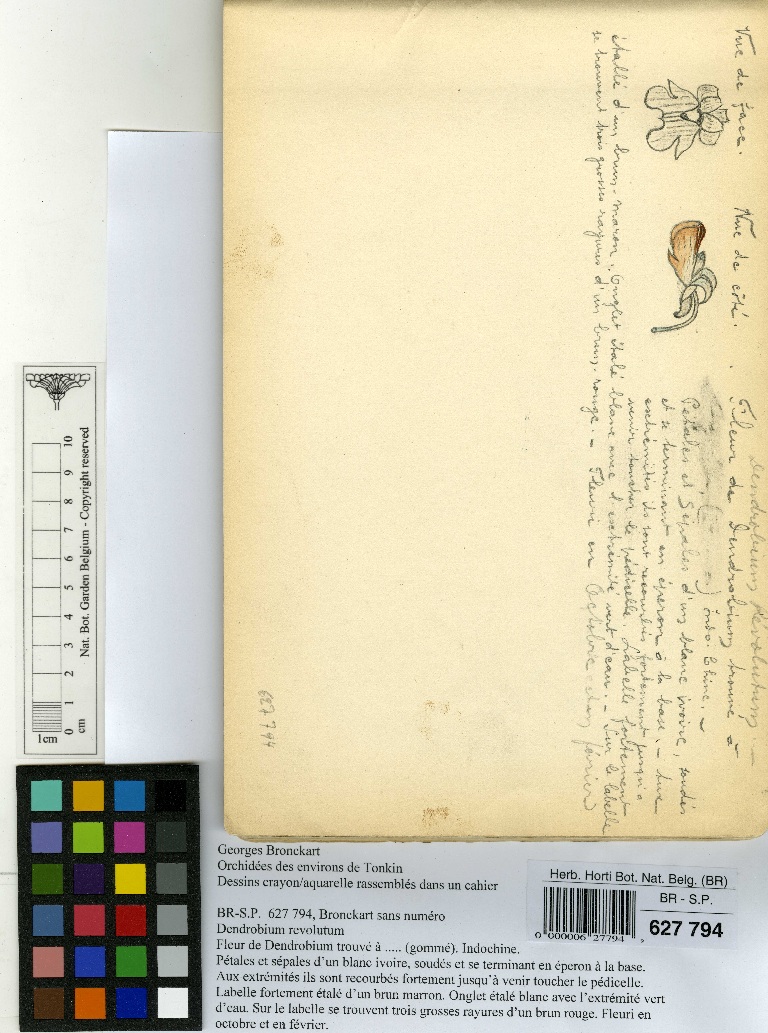 Vue de face. Vue de côté.
Dendrobium revolutum. —
Fleur de Dendrobium trouvé à
Indo. Chine. —
Pétales et Sépales d'un blanc ivoire, soudés
et se terminant en éperon à la base. — Aux
extrémités ils sont recourbés fortement jusqu'à
venir toucher le pédicelle. Labelle fortement
étallé d'un brun-maron. Onglet étalé blanc avec l'extrémité vert d'eau. — Sur le labelle
se trouvent trois grosses rayures d'un brun-rouge. — Fleuri en Octobre et en février
627 794
10
9
8
7
6
5
4
3
2
1
0
cm
1cm
Nat. Bot. Garden Belgium - Copyright reserved
Georges Bronckart
Orchidées des environs de Tonkin
Dessins crayon/aquarelle rassemblés dans un cahier
BR-S.P. 627 794, Bronckart sans numéro
Dendrobium revolutum
Fleur de Dendrobium trouvé à ..... (gommé). Indochine.
Pétales et sépales d'un blanc ivoire, soudés et se terminant en éperon à la base.
Aux extrémités ils sont recourbés fortement jusqu'à venir toucher le pédicelle.
Labelle fortement étalé d'un brun marron. Onglet étalé blanc avec l'extrémité vert
d'eau. Sur le labelle se trouvent trois grosses rayures d'un brun rouge. Fleuri en
octobre et en février.
Herb. Horti Bot. Nat. Belg. (BR)
BR - S.P.
0 000006 27794
627 794